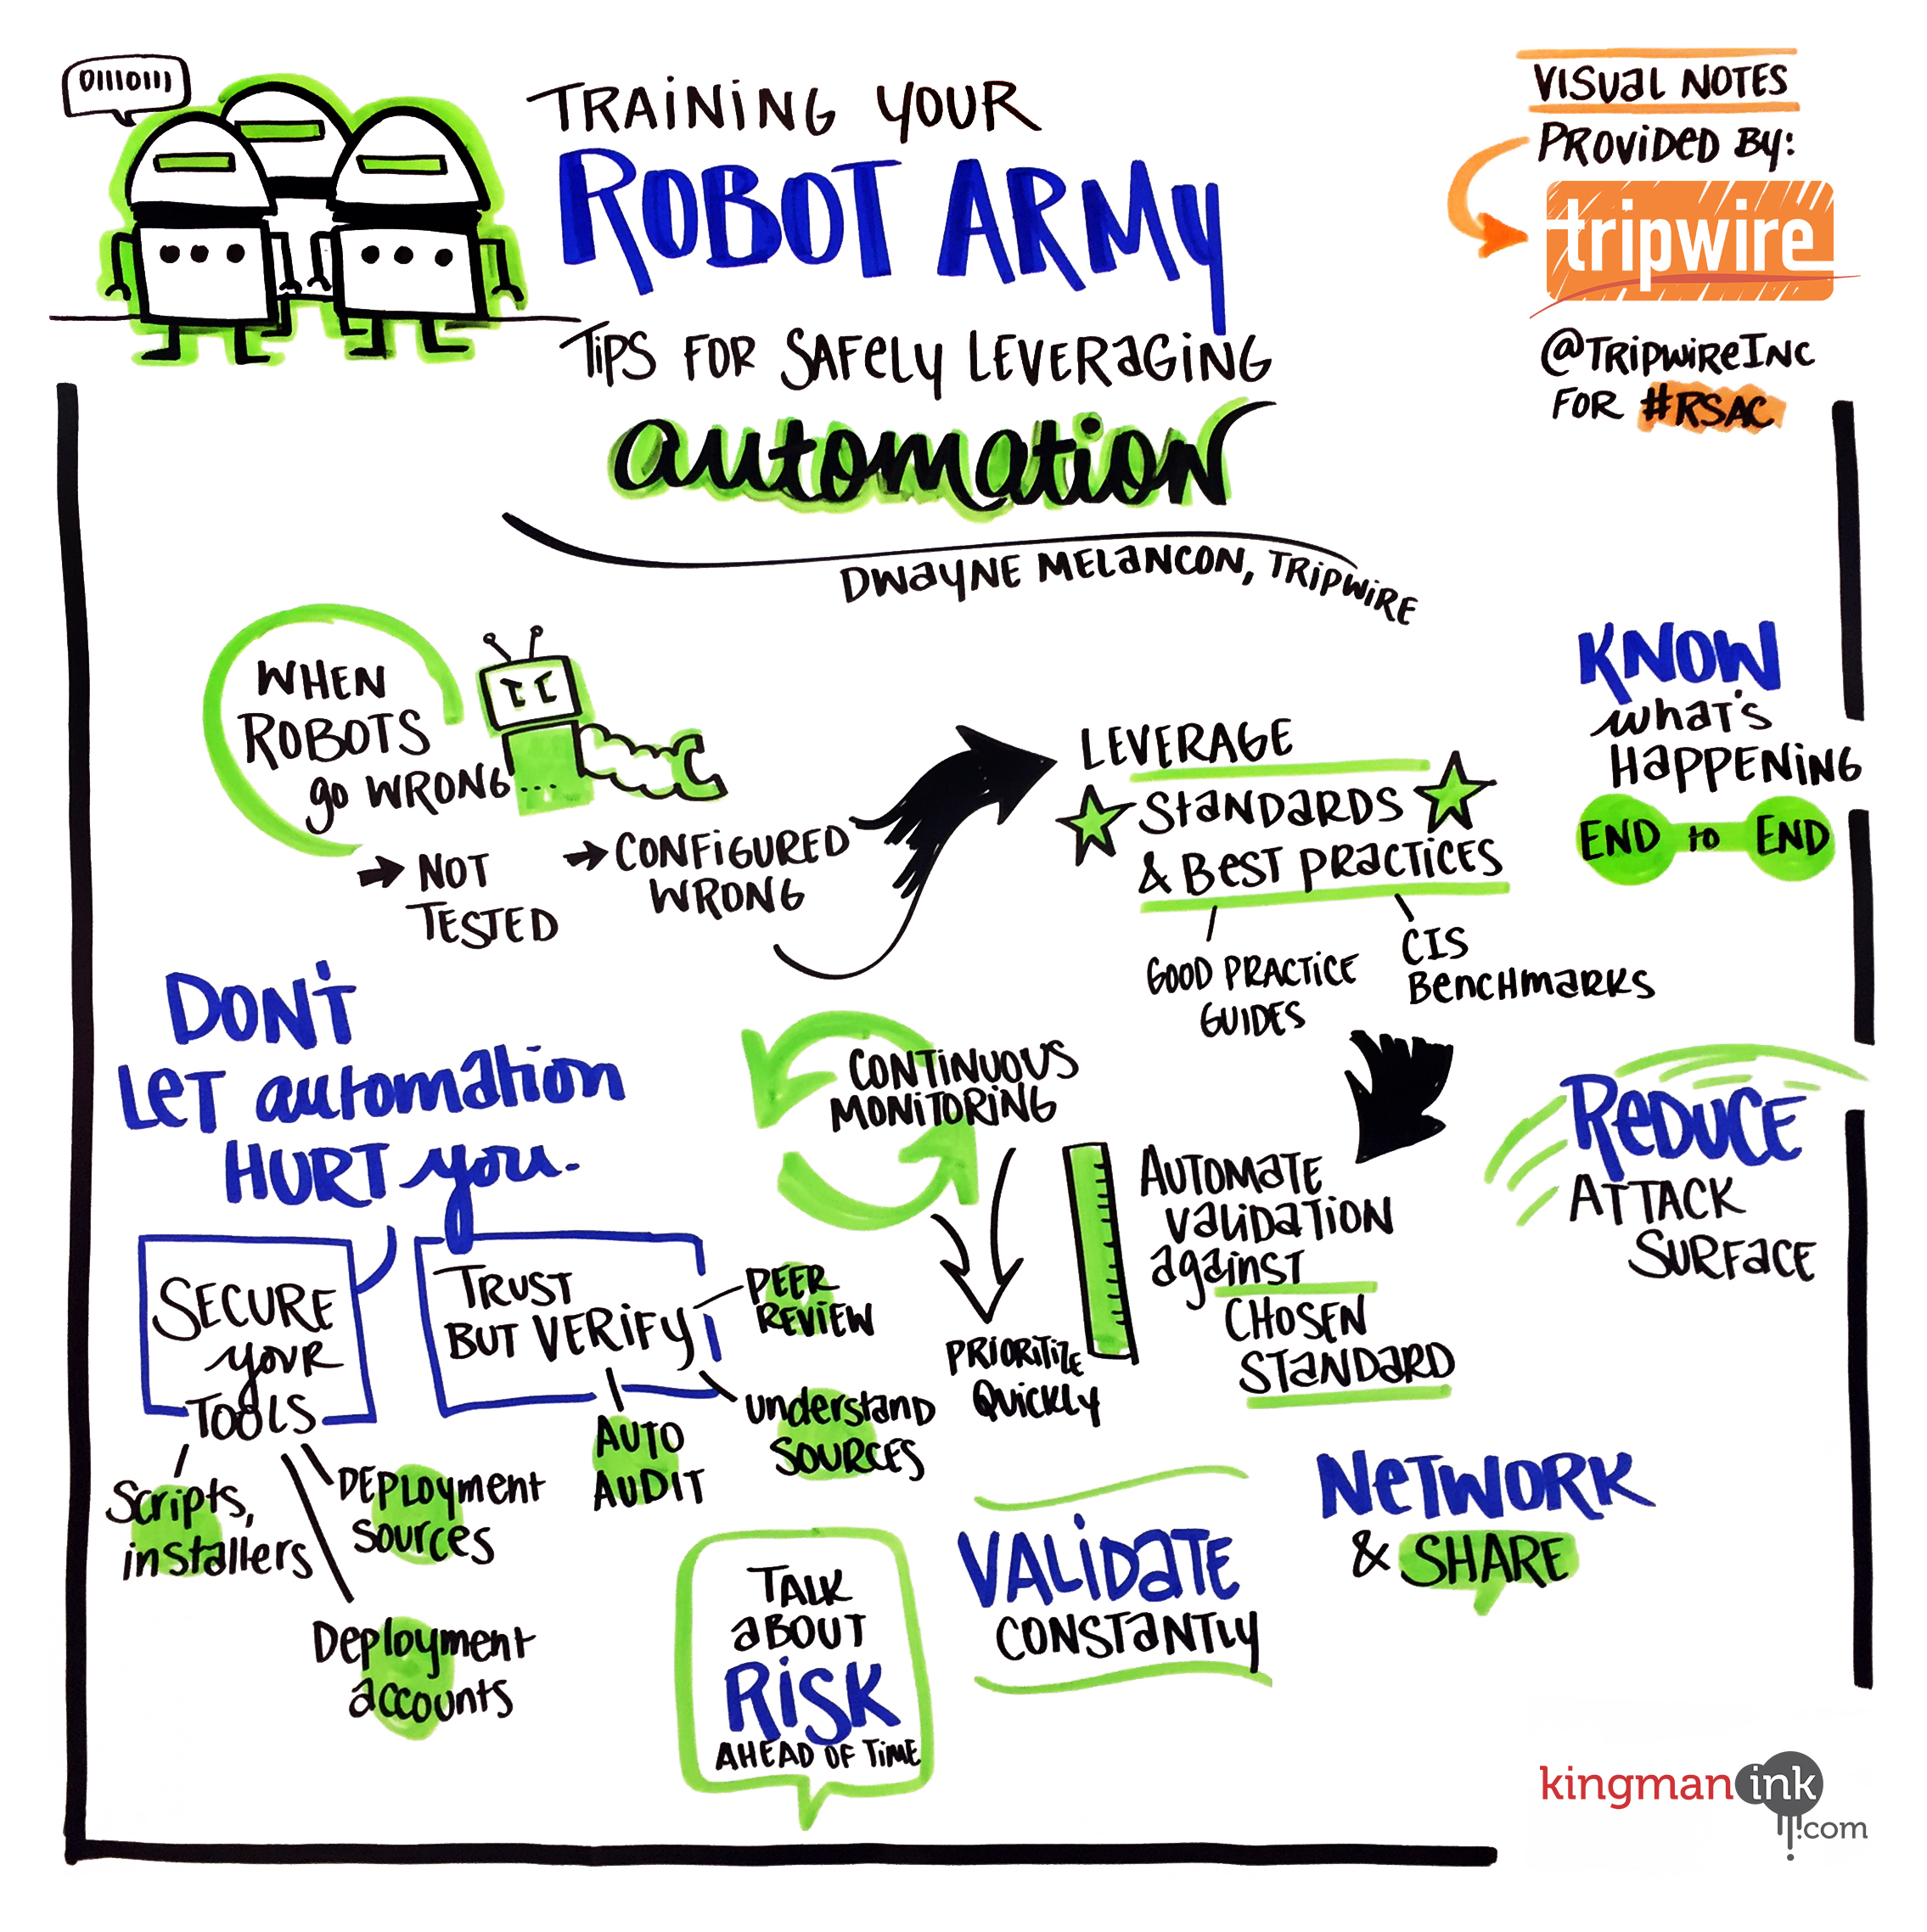 011110111
TRAINING YOUR
ROBOT ARMY
TIPS FOR SAFELY LEVERAGING
automation
DWAYNE MELANCON, TRIPWIRE
VISUAL NOTES
PROVIDED BY:
tripwire
@TRIPWIREINC
FOR #RSAC
WHEN
ROBOTS
go WRONG...
→ NOT
TESTED
→ CONFIGURED
WRONG
LEVERAGE
STANDARDS
& BEST PRACTICES
GOOD PRACTICE
GUIDES
CIS
BENCHMARKS
KNOW
what's
HAPPENING
END to END
DON'T
LET automation
HURT you.
SECURE
YOUR
TOOLS
Scripts,
installers
DEPLOYMENT
SOURCES
Deployment
accounts
TRUST
BUT VERIFY
PEER
REVIEW
AUTO
AUDIT
understand
SOURCES
CONTINUOUS
MONITORING
PRIORITIZE
QUICKLY
AUTOMATE
VALIDATION
against
CHOSEN
STANDARD
REDUCE
ATTACK
SURFACE
TALK
ABOUT
RISK
AHEAD OF TIME
VALIDATE
CONSTANTLY
NETWORK
& SHARE
kingman ink
.com